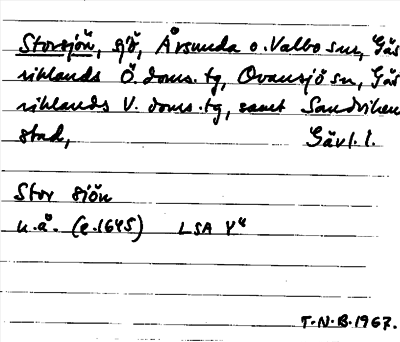 Storsjön, sjö, Årsunda o. Valbo snr, Gäs
triklands Ö. doms.tg, Ovansjö sn, Gäs
triklands V. doms.tg, samt Sandviken
stad, Gävl. l.
Stor siön
u.å. (e.1645) LSA Y4
T.N.B.1967.